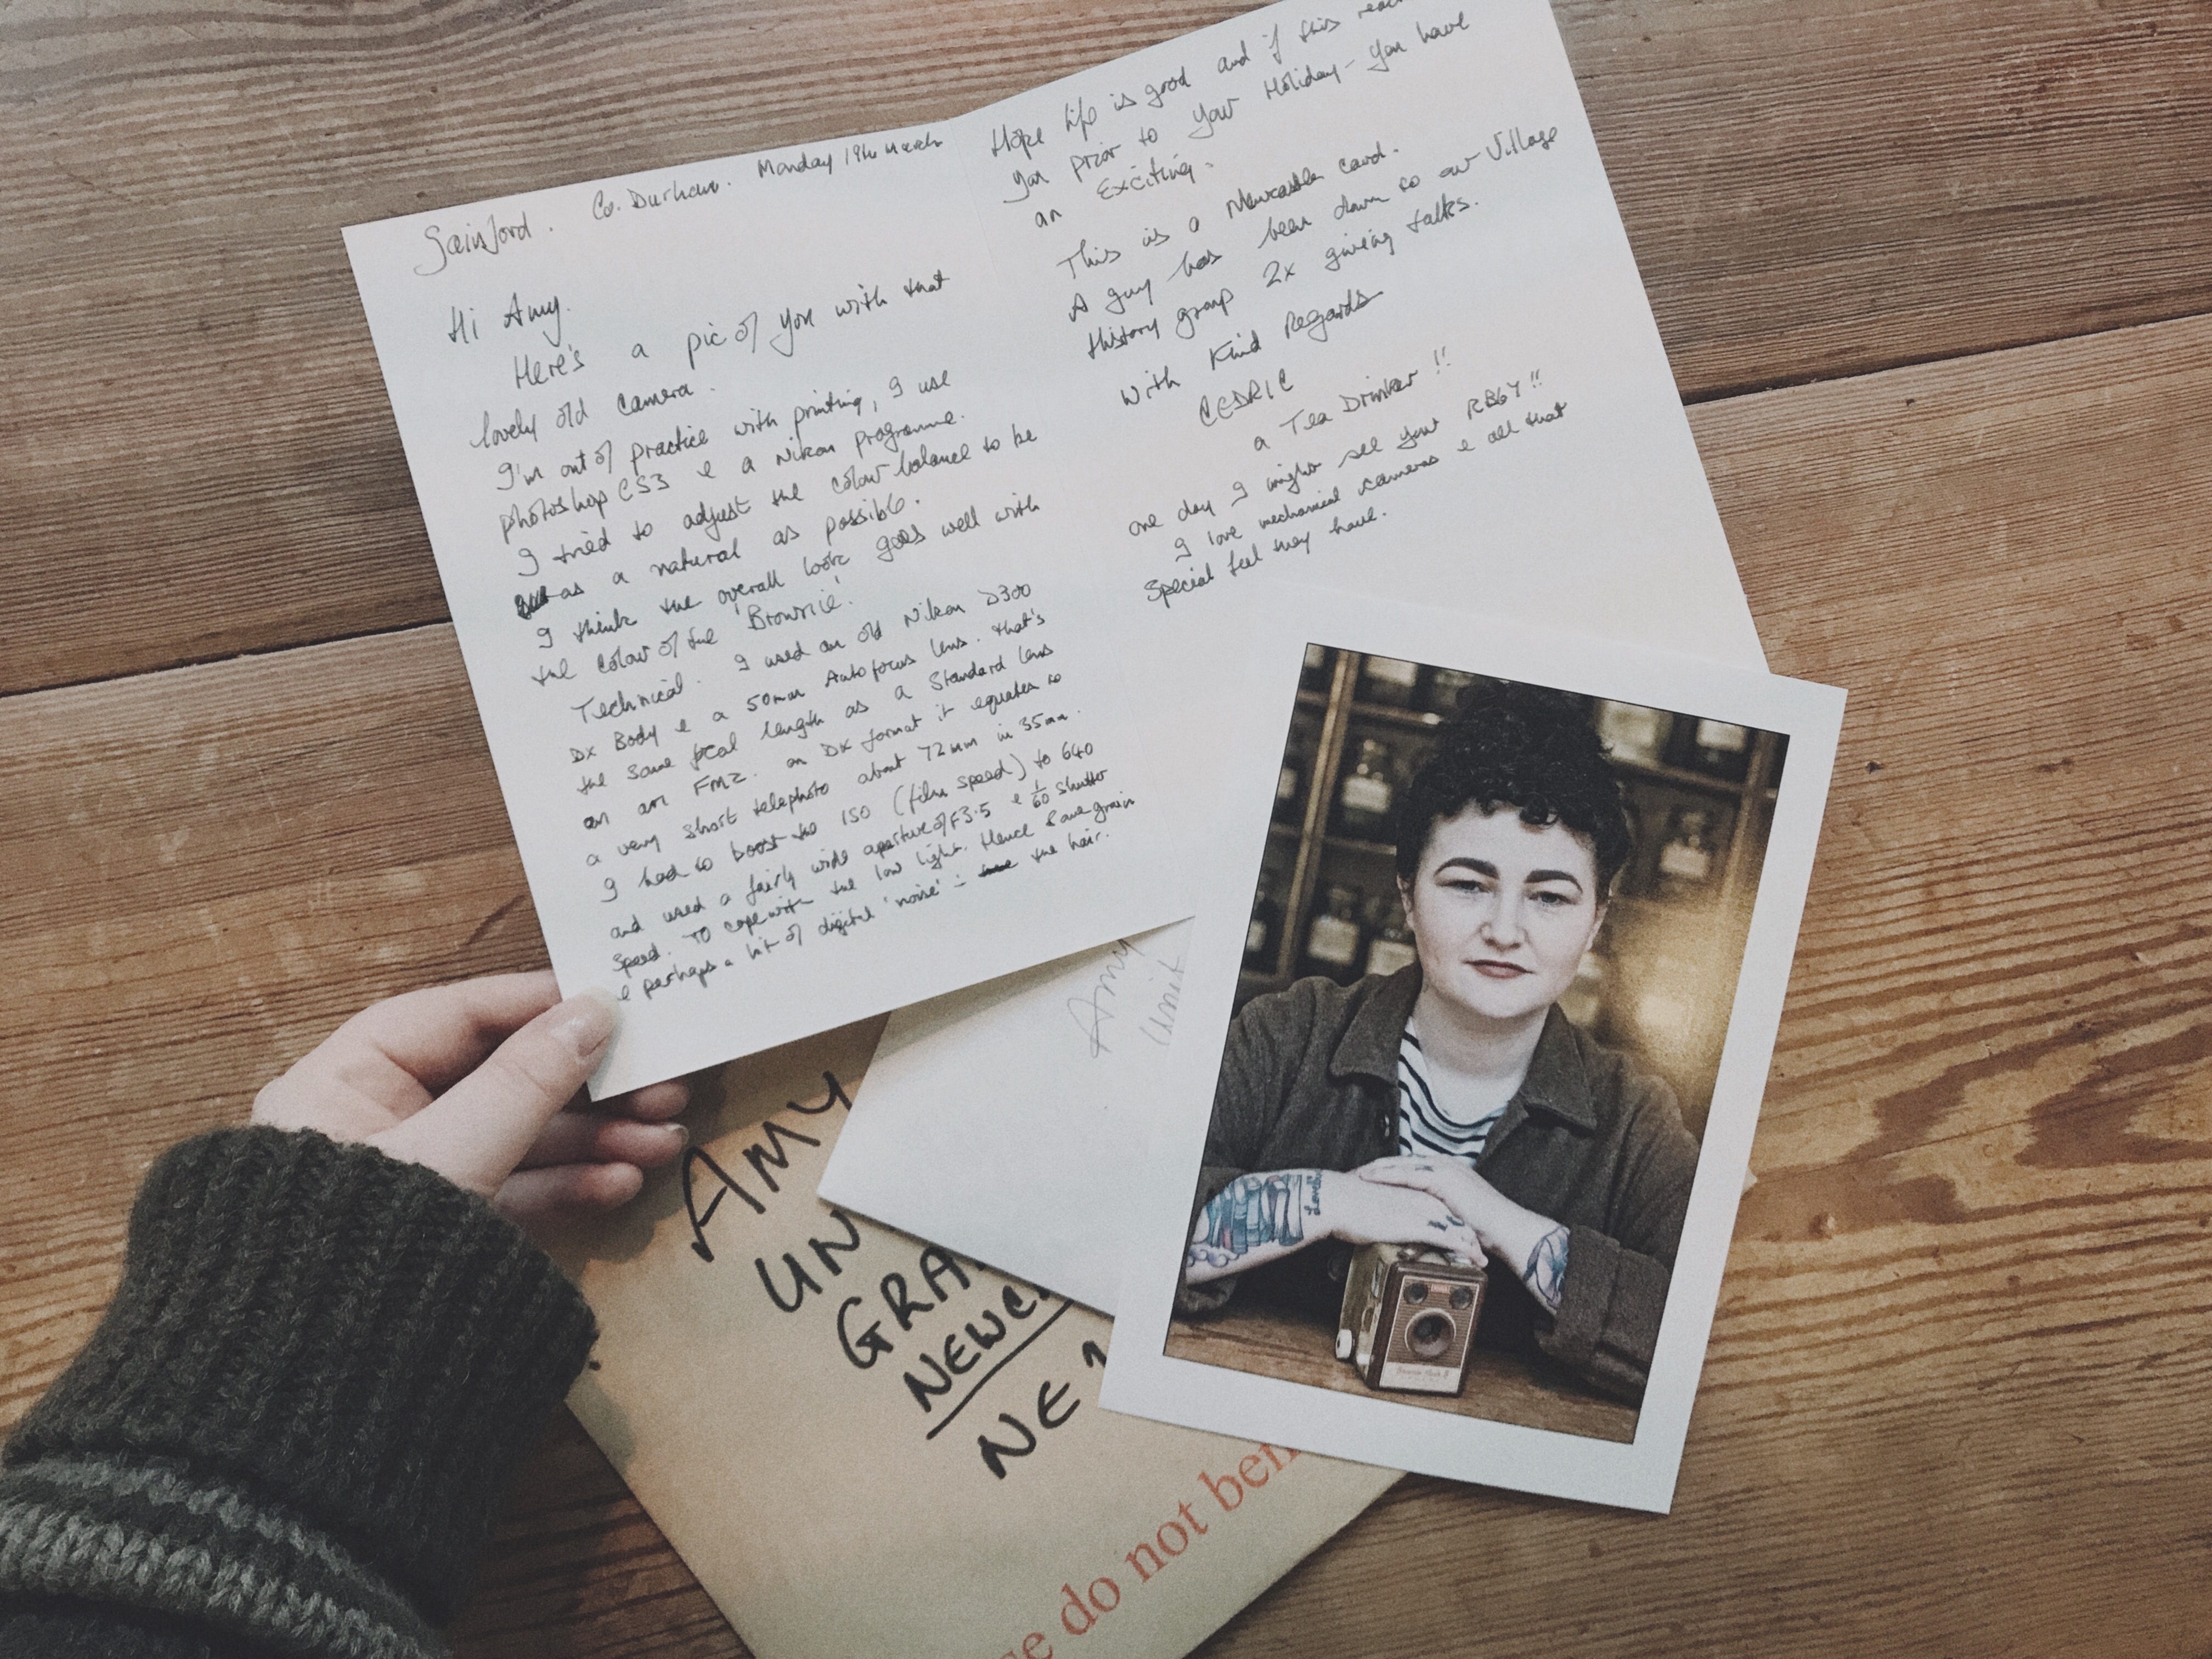 Gainford. Co. Durham. Monday 19th March
Hi Amy.
Here's a pic of you with that
lovely old camera.
I'm out of practice with printing, I use
photoshop CS3 & a Nikon programme.
I tried to adjust the colour balance to be
as a natural as possible.
I think the overall look goes well with
the colour of the 'Brownie'.
Technical. I used an old Nikon D300
DX Body & a 50mm Autofocus lens. that's
the same focal length as a Standard lens
on an FM2. on DX format it equates to
a very short telephoto about 72mm in 35mm.
I had to boost the ISO (film speed) to 640
and used a fairly wide aperture of F3.5 & 1/60 shutter
Speed. To cope with the low light. Hence some grain
& perhaps a bit of digital 'noise' - the hair.
Hope life is good and if this
you prior to your Holiday - you have
an Exciting.
This is a Newcastle card.
A guy has been down to our Village
History group 2x giving talks.
With Kind Regards
CEDRIC
a Tea Drinker !!
one day I might see your RB67!!
I love mechanical cameras & all that
Special feel they have.
Amy
Unit
AMY
UN
GRA
NEWC
NE1
do not ben